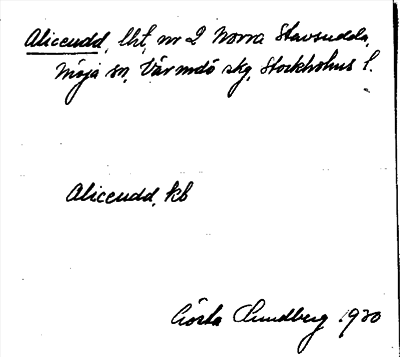 Aliceudd, lht, nr 2 Norra Stavsudda,
Möja sn, Värmdö skg, Stockholms l.
Aliceudd, kb
Gösta Lundberg 1930